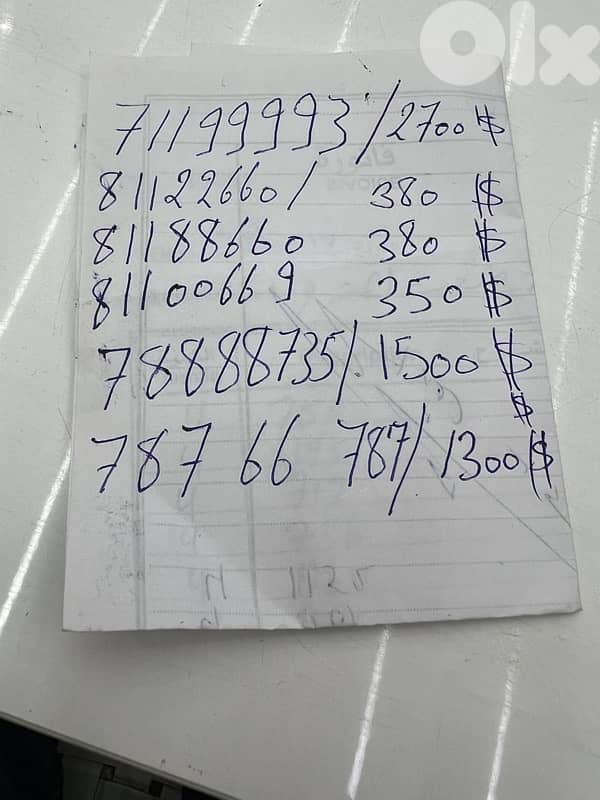 OLX
71199993/2700$
81122660/ 380 $
81188660 380 $
81100669 350 $
78888735/ 1500$
$
787 66 787/1300$